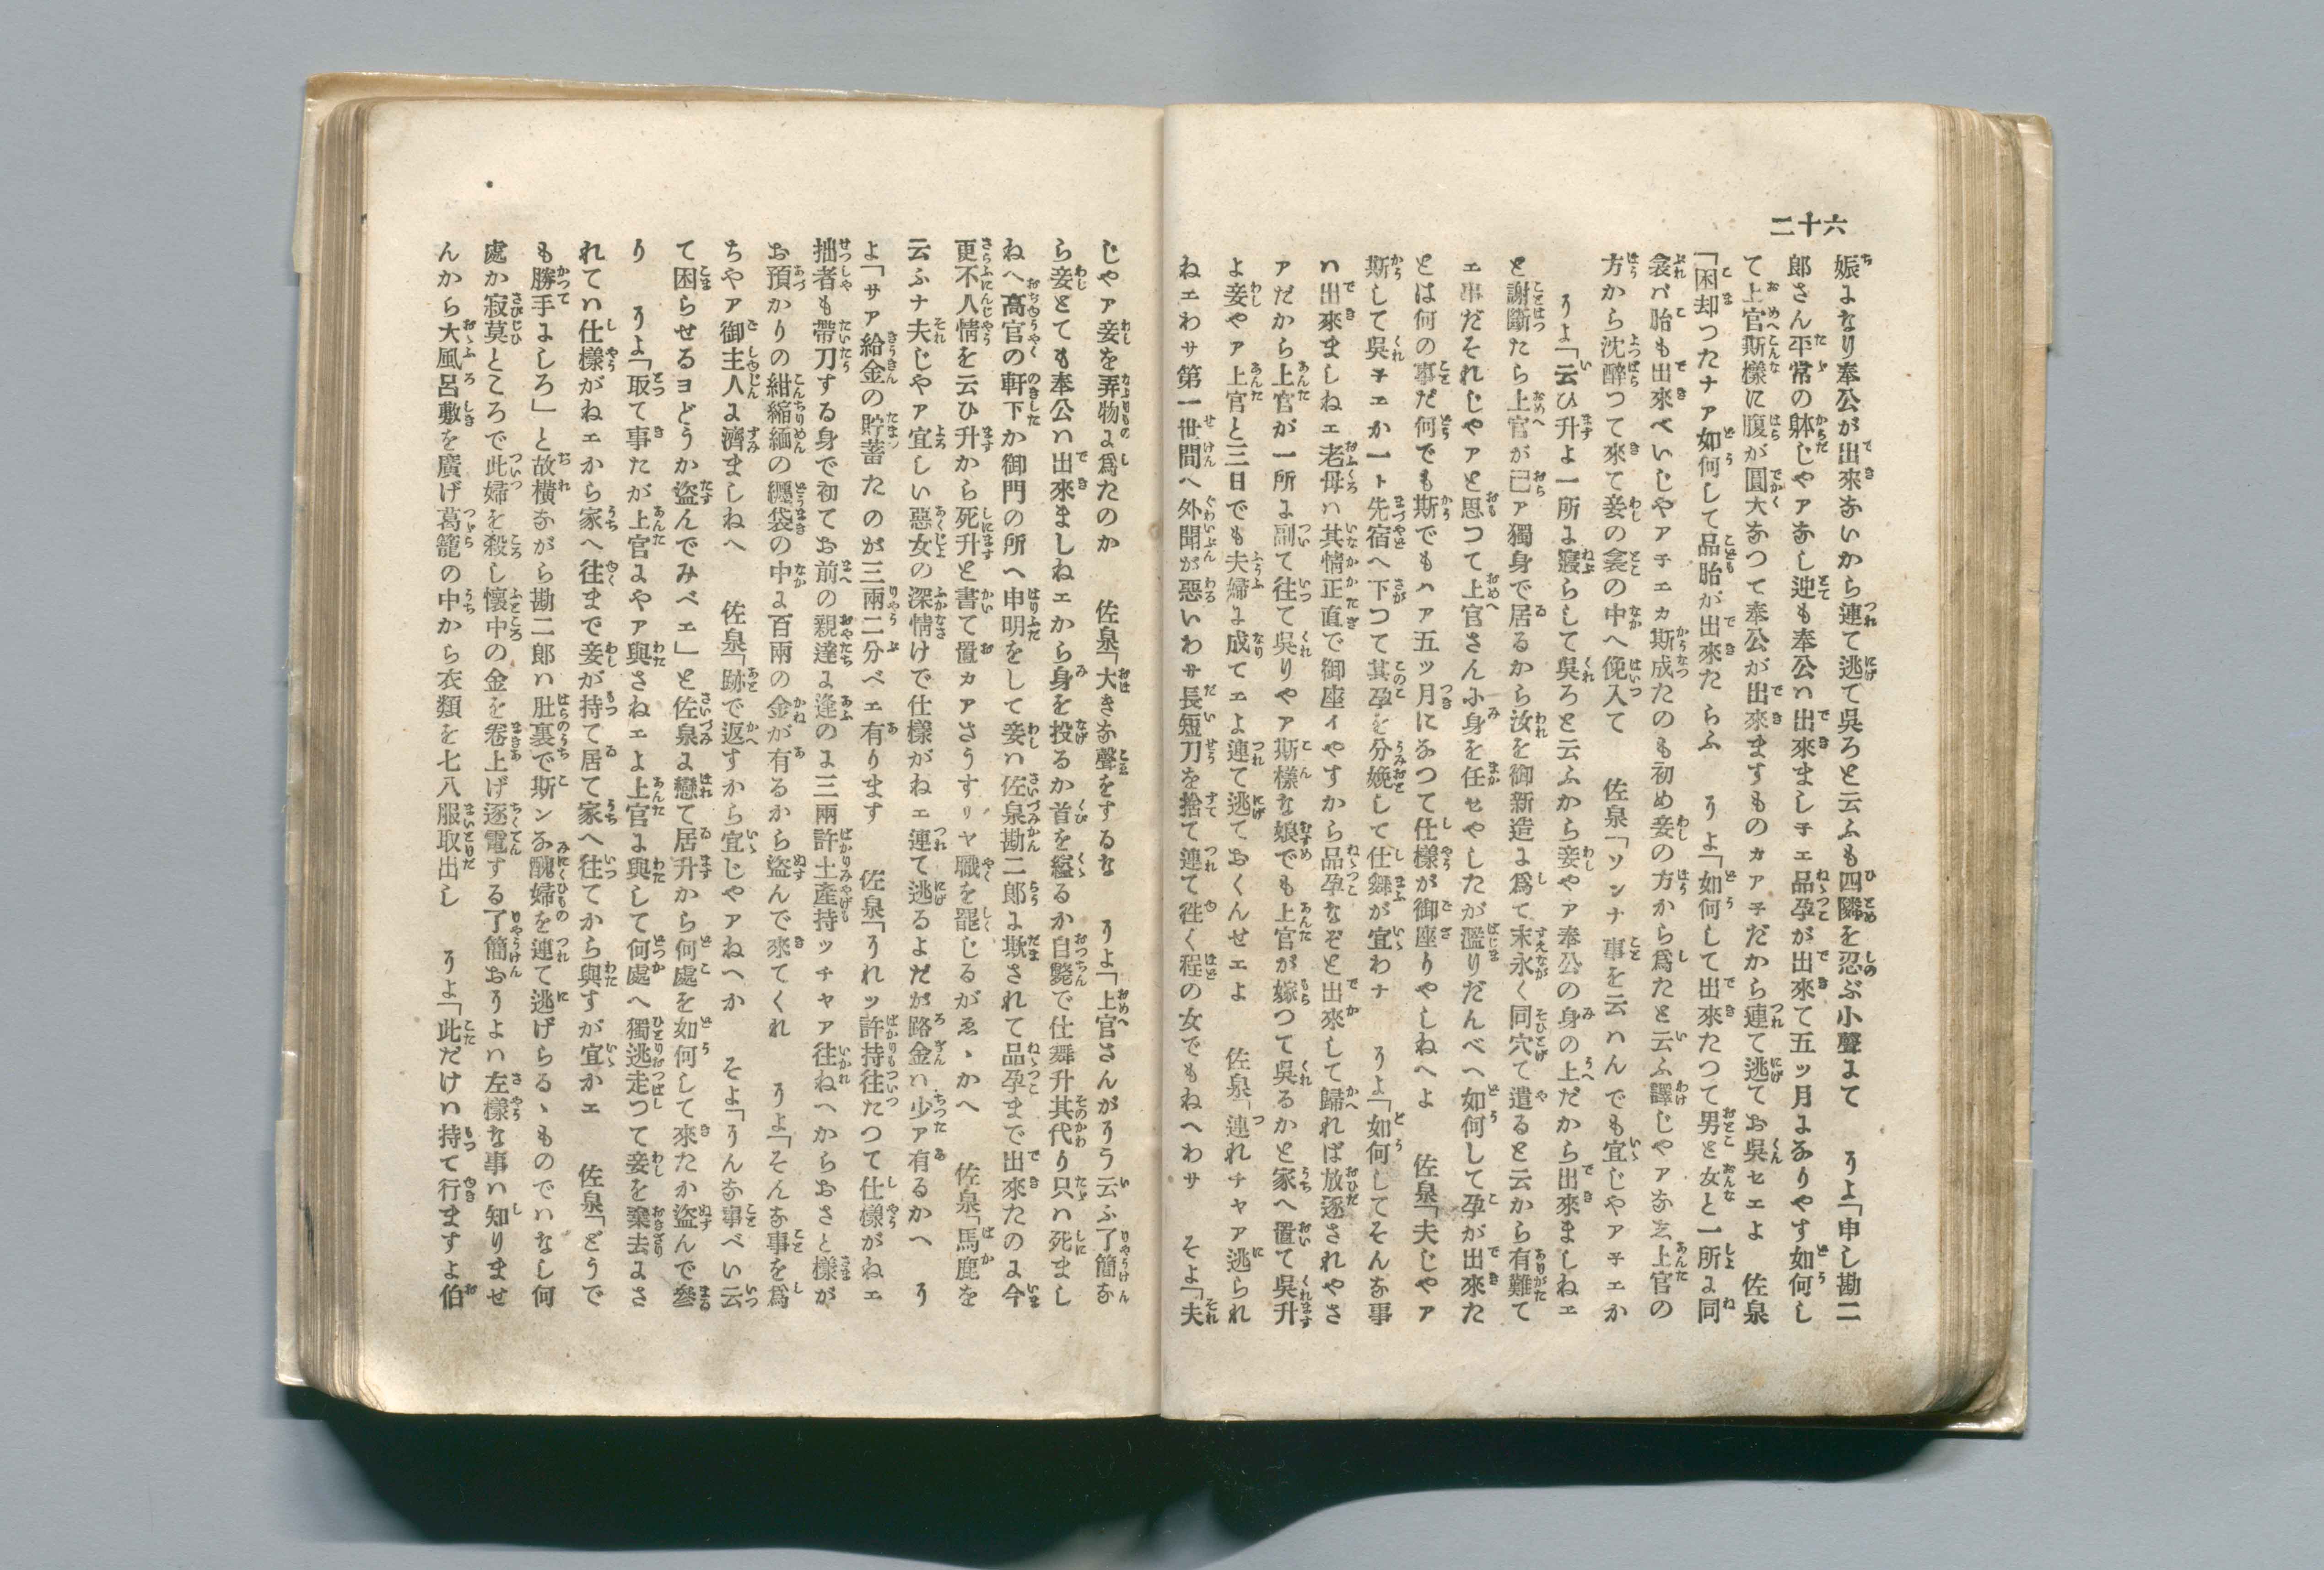 二十六
娠よなり奉公が出來ないから連て逃て吳ろと云ふも四隣を忍ぶ小聲よて　りよ「申し勘二
郎さん平常の躰じやアなし迚も奉公ハ出來ましチエ品孕が出來て五ッ月よなりやす如何し
て上官斯樣に腹が圓大なつて奉公が出來ますものカアチだから連て逃てお吳セエよ　佐泉
「困却つたナア如何して品胎が出來たらふ　りよ「如何して出來たつて男と女と一所よ同
衾バ胎も出來べいじやアチエカ斯成たのも初め妾の方から爲たと云ふ譯じやアなゑ上官の
方から沈醉つて來て妾の衾の中へ俛入て　佐泉「ソンナ事を云ハんでも宜じやアチエか
りよ「云ひ升よ一所よ寢らして吳ろと云ふから妾やア奉公の身の上だから出來ましねエ
と謝斷たら上官が己ア獨身で居るから汝を御新造よ爲て末永く同穴て遣ると云から有難て
エ事だそれじやアと思つて上官さん小身を任せやしたが濫りだんべへ如何して孕が出來た
とは何の事だ何でも斯でもハア五ッ月になつて仕樣が御座りやしねへよ　佐泉「夫じやア
斯して吳チエか一ト先宿へ下つて其孕を分娩して仕舞が宜わナ　りよ「如何してそんな事
ハ出來ましねエ老母ハ其情正直で御座イやすから品孕なぞと出來して歸れば放逐されやさ
アだから上官が一所よ副て往て吳りやア斯樣な娘でも上官が嫁つて吳るかと家へ置て吳升
よ妾やア上官と三日でも夫婦よ成てエよ連て逃ておくんせエよ　佐泉「連れチヤア逃られ
ねエわサ第一世間へ外聞が惡いわサ長短刀を捨て連て徃く程の女でもねへわサ　そよ「夫
じやア妾を弄物よ爲たのか　佐泉「大きな聲をするな　りよ「上官さんがりう云ふ了簡な
ら妾とても奉公ハ出來ましねエから身を投るか首を縊るか自斃で仕舞升其代り只ハ死まし
ねへ高官の軒下か御門の所へ申明をして妾ハ佐泉勘二郎よ欺されて品孕まで出來たのよ今
更不人情を云ひ升から死升と書て置カアさうすリヤ職を罷じるがゑゝかへ　佐泉「馬鹿を
云ふナ夫じやア宜しい惡女の深情けで仕樣がねエ連て逃るよだが路金ハ少ア有るかへ　り
よ「サア給金の貯蓄たのが三兩二分べエ有ります　佐泉「りれッ許持往たつて仕樣がねエ
拙者も帶刀する身で初てお前の親達よ逢のよ三兩許土產持ッチヤア往ねへからおさと樣が
お預かりの紺縮緬の纒袋の中よ百兩の金が有るから盜んで來てくれ　りよ「そんな事を爲
ちやア御主人よ濟ましねへ　佐泉「跡で返すから宜じやアねへか　そよ「りんな事べい云
て困らせるヨどうか盜んでみベエ」と佐泉よ戀て居升から何處を如何して來たか盜んで參
り　りよ「取て事たが上官よやア與さねエよ上官よ與して何處へ獨逃走つて妾を棄去よさ
れてハ仕樣がねエから家へ往まで妾が持て居て家へ往てから與すが宜かエ　佐泉「どうで
も勝手よしろ」と故橫ながら勘二郎ハ肚裏で斯ンな醜婦を連て逃げらるゝものでハなし何
處か寂莫ところで此婦を殺し懷中の金を卷上げ逐電する了簡おりよハ左樣な事ハ知りませ
んから大風呂敷を廣げ葛籠の中から衣類を七八服取出し　りよ「此だけハ持て行ますよ伯